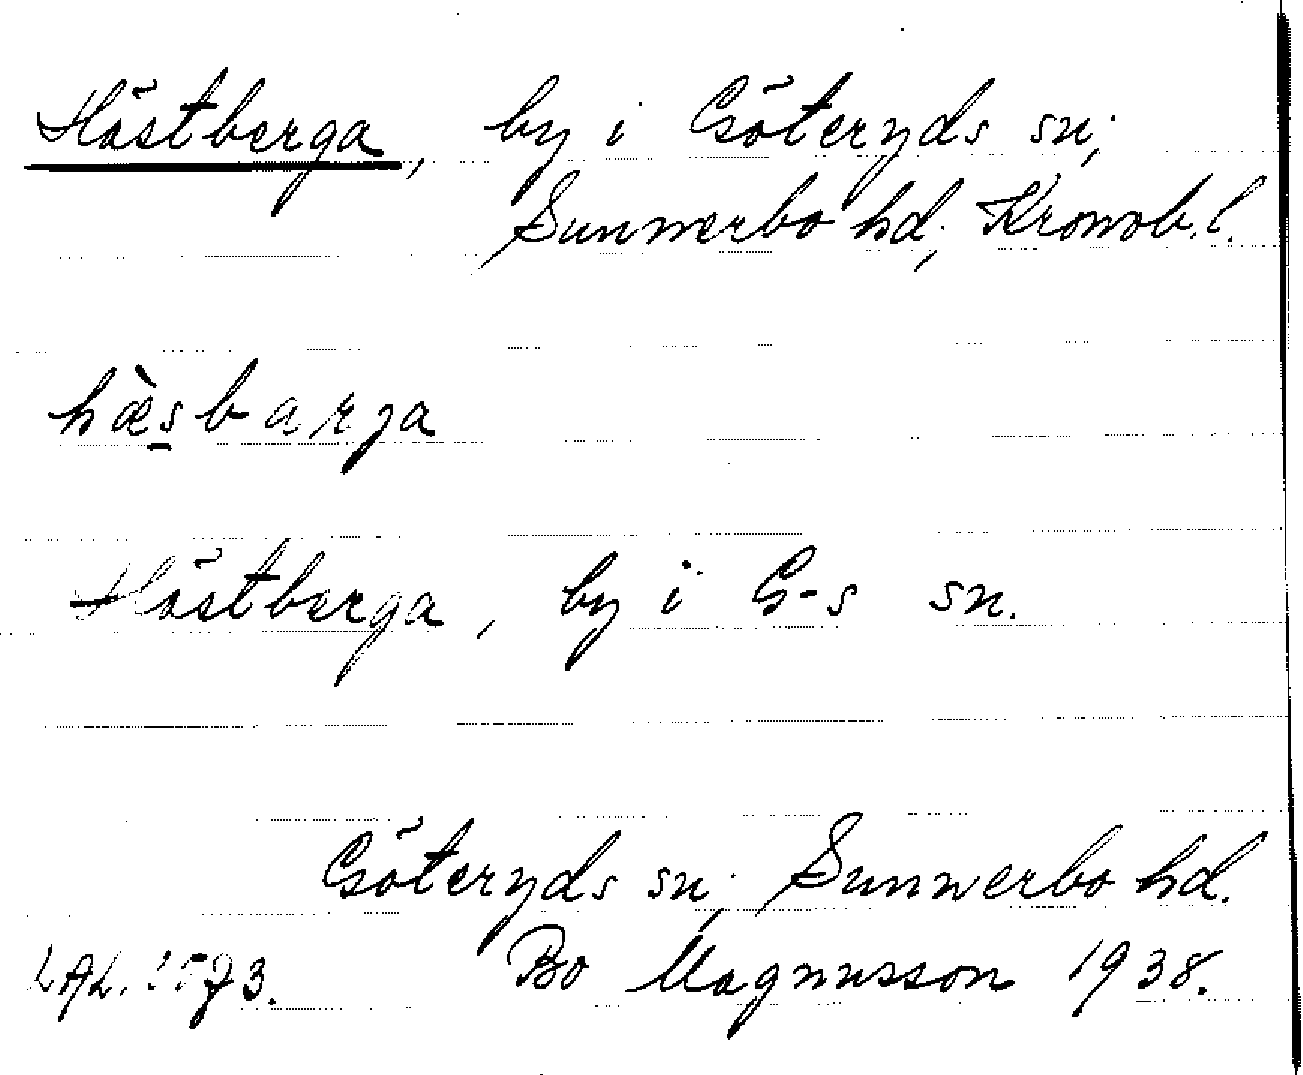 Hästberga, by i Göteryds sn;
Sunnerbo hd; Kronob. l.
hæ̀sbarga
Hästberga, by i G-s sn.
Göteryds sn; Sunnerbo hd.
Bo Magnusson 1938.